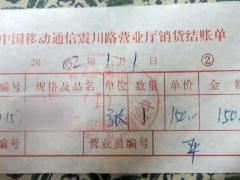 中国移动通信震川路营业厅销货结账单
2002年1月1日 ②
编号 规格及品名 单位 数量 单价 金额
15 张 1 150.— 150.—
编号 营业员编号